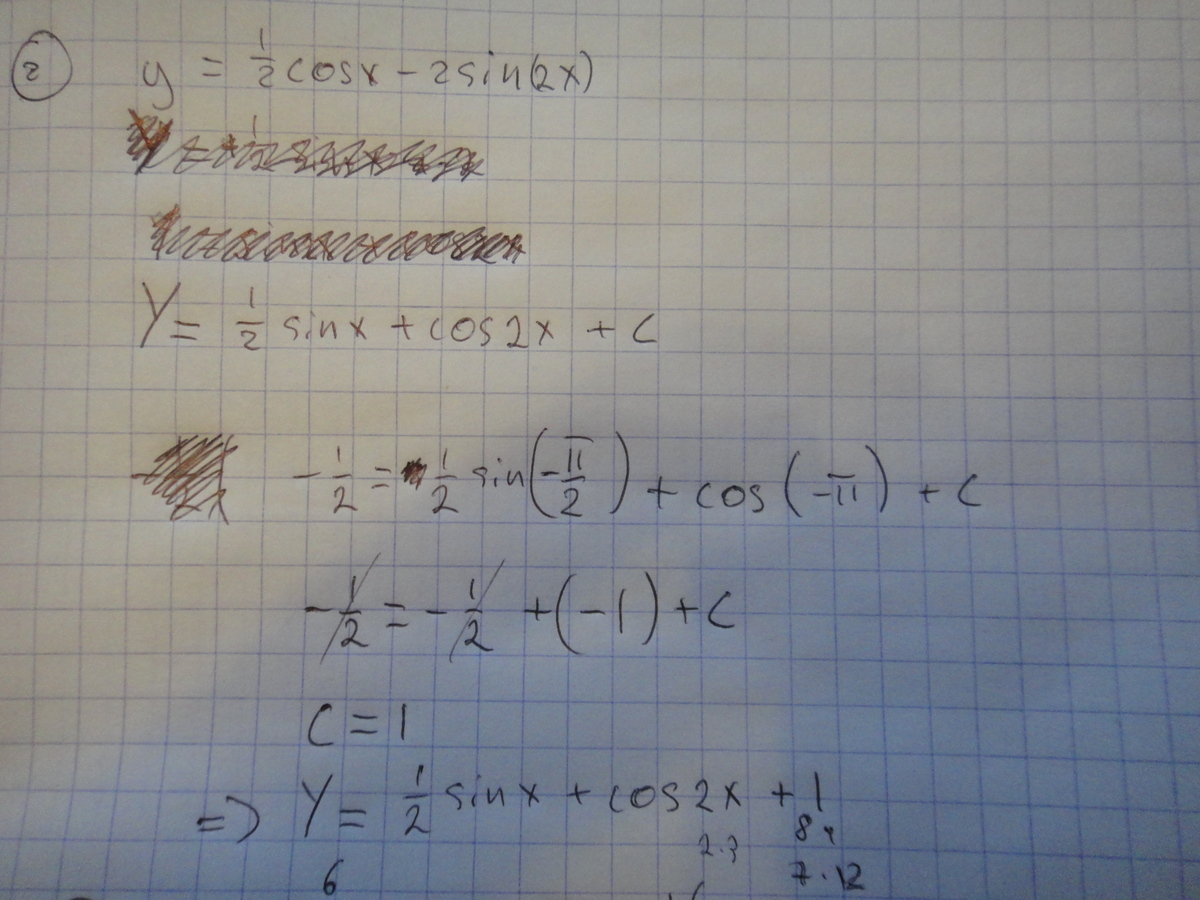 2 y = 1/2 cosx - 2sin(2x)
Y = 1/2 sinx + cos2x + C
-1/2 = 1/2 sin(-π/2) + cos(-π) + C
-1/2 = -1/2 + (-1) + C
C = 1
=> Y = 1/2 sinx + cos2x + 1
2.3
6 7.12